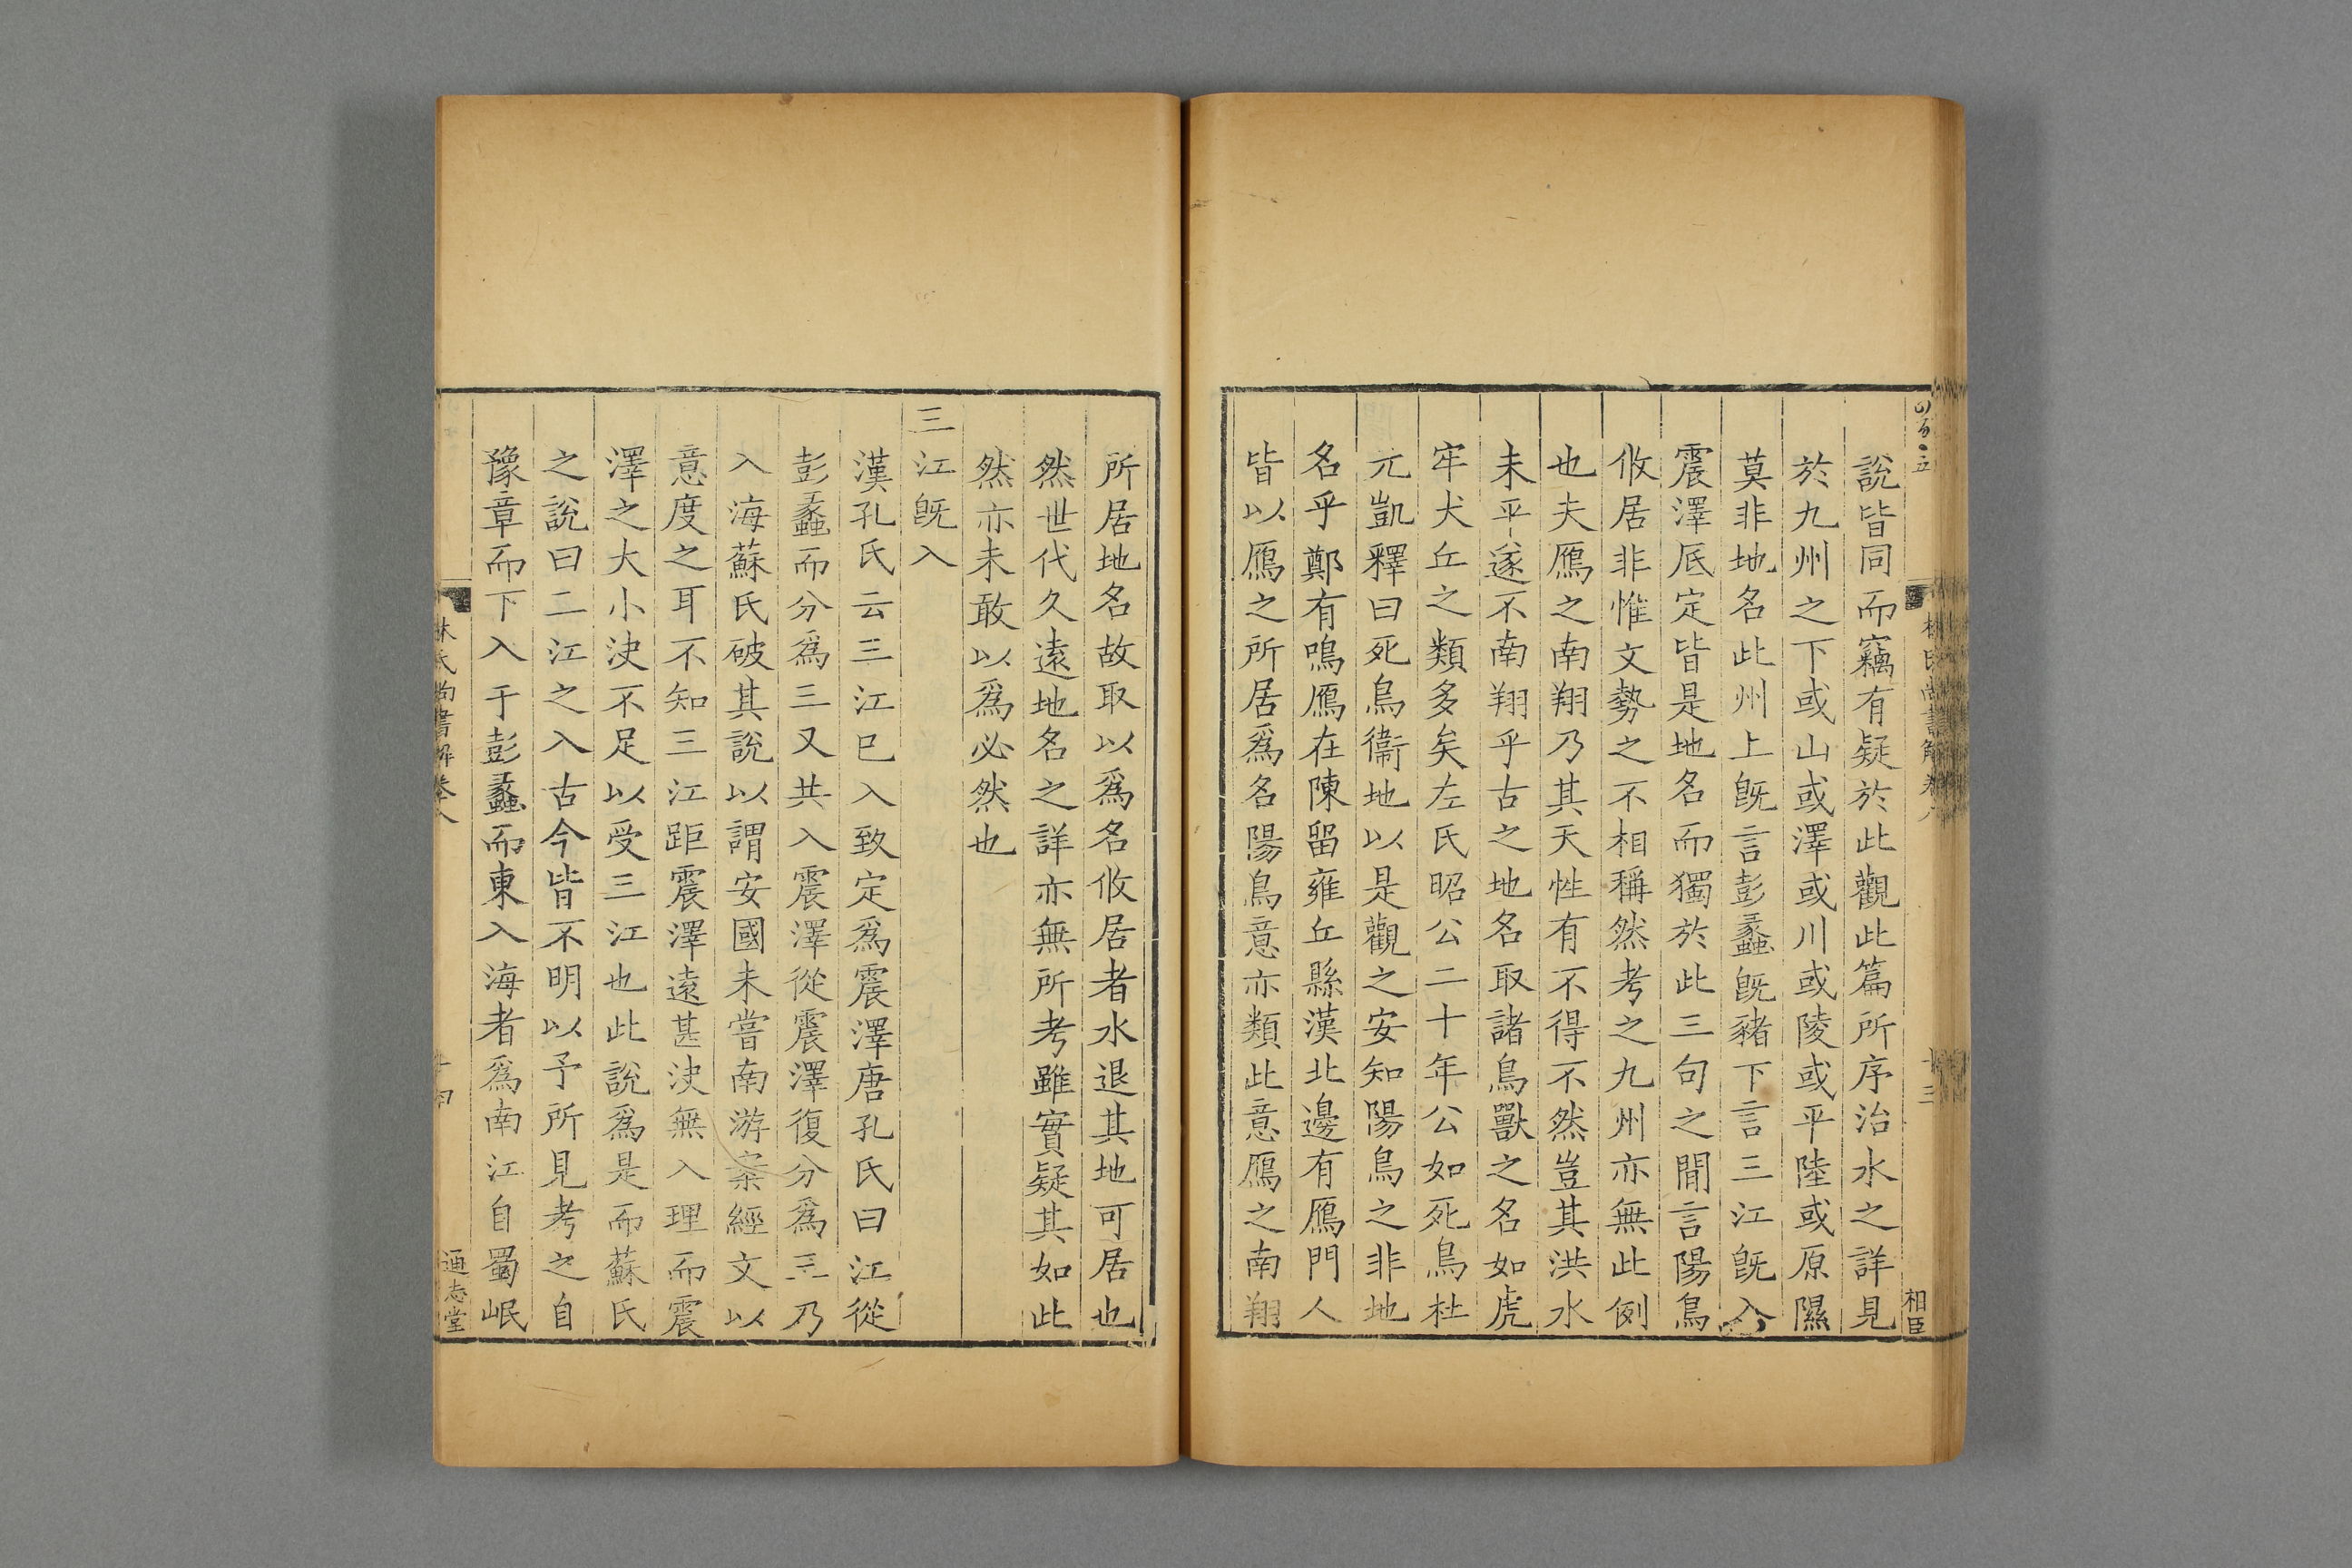 說皆同而竊有疑於此觀此篇所序治水之詳見
於九州之下或山或澤或川或陵或平陸或原隰
莫非地名此州上旣言彭蠡旣豬下言三江旣入
震澤厎定皆是地名而獨於此三句之間言陽鳥
攸居非惟文勢之不相稱然考之九州亦無此例
也夫鴈之南翔乃其天性有不得不然豈其洪水
未平遂不南翔乎古之地名取諸鳥獸之名如虎
牢犬丘之類多矣左氏昭公二十年公如死鳥杜
元凱釋曰死鳥衞地以是觀之安知陽鳥之非地
名乎鄭有鳴鴈在陳留雍丘縣漢北邊有鴈門人
皆以鴈之所居爲名陽鳥意亦類此意鴈之南翔
相臣
所居地名故取以爲名攸居者水退其地可居也
然世代久遠地名之詳亦無所考雖實疑其如此
然亦未敢以爲必然也
三江旣入
漢孔氏云三江已入致定爲震澤唐孔氏曰江從
彭蠡而分爲三又共入震澤從震澤復分爲三乃
入海蘇氏破其說以謂安國未嘗南游案經文以
意度之耳不知三江距震澤遠甚決無入理而震
澤之大小決不足以受三江也此說爲是而蘇氏
之說曰二江之入古今皆不明以予所見考之自
豫章而下入于彭蠡而東入海者爲南江自蜀岷
林氏尚書解卷八
十四
通志堂